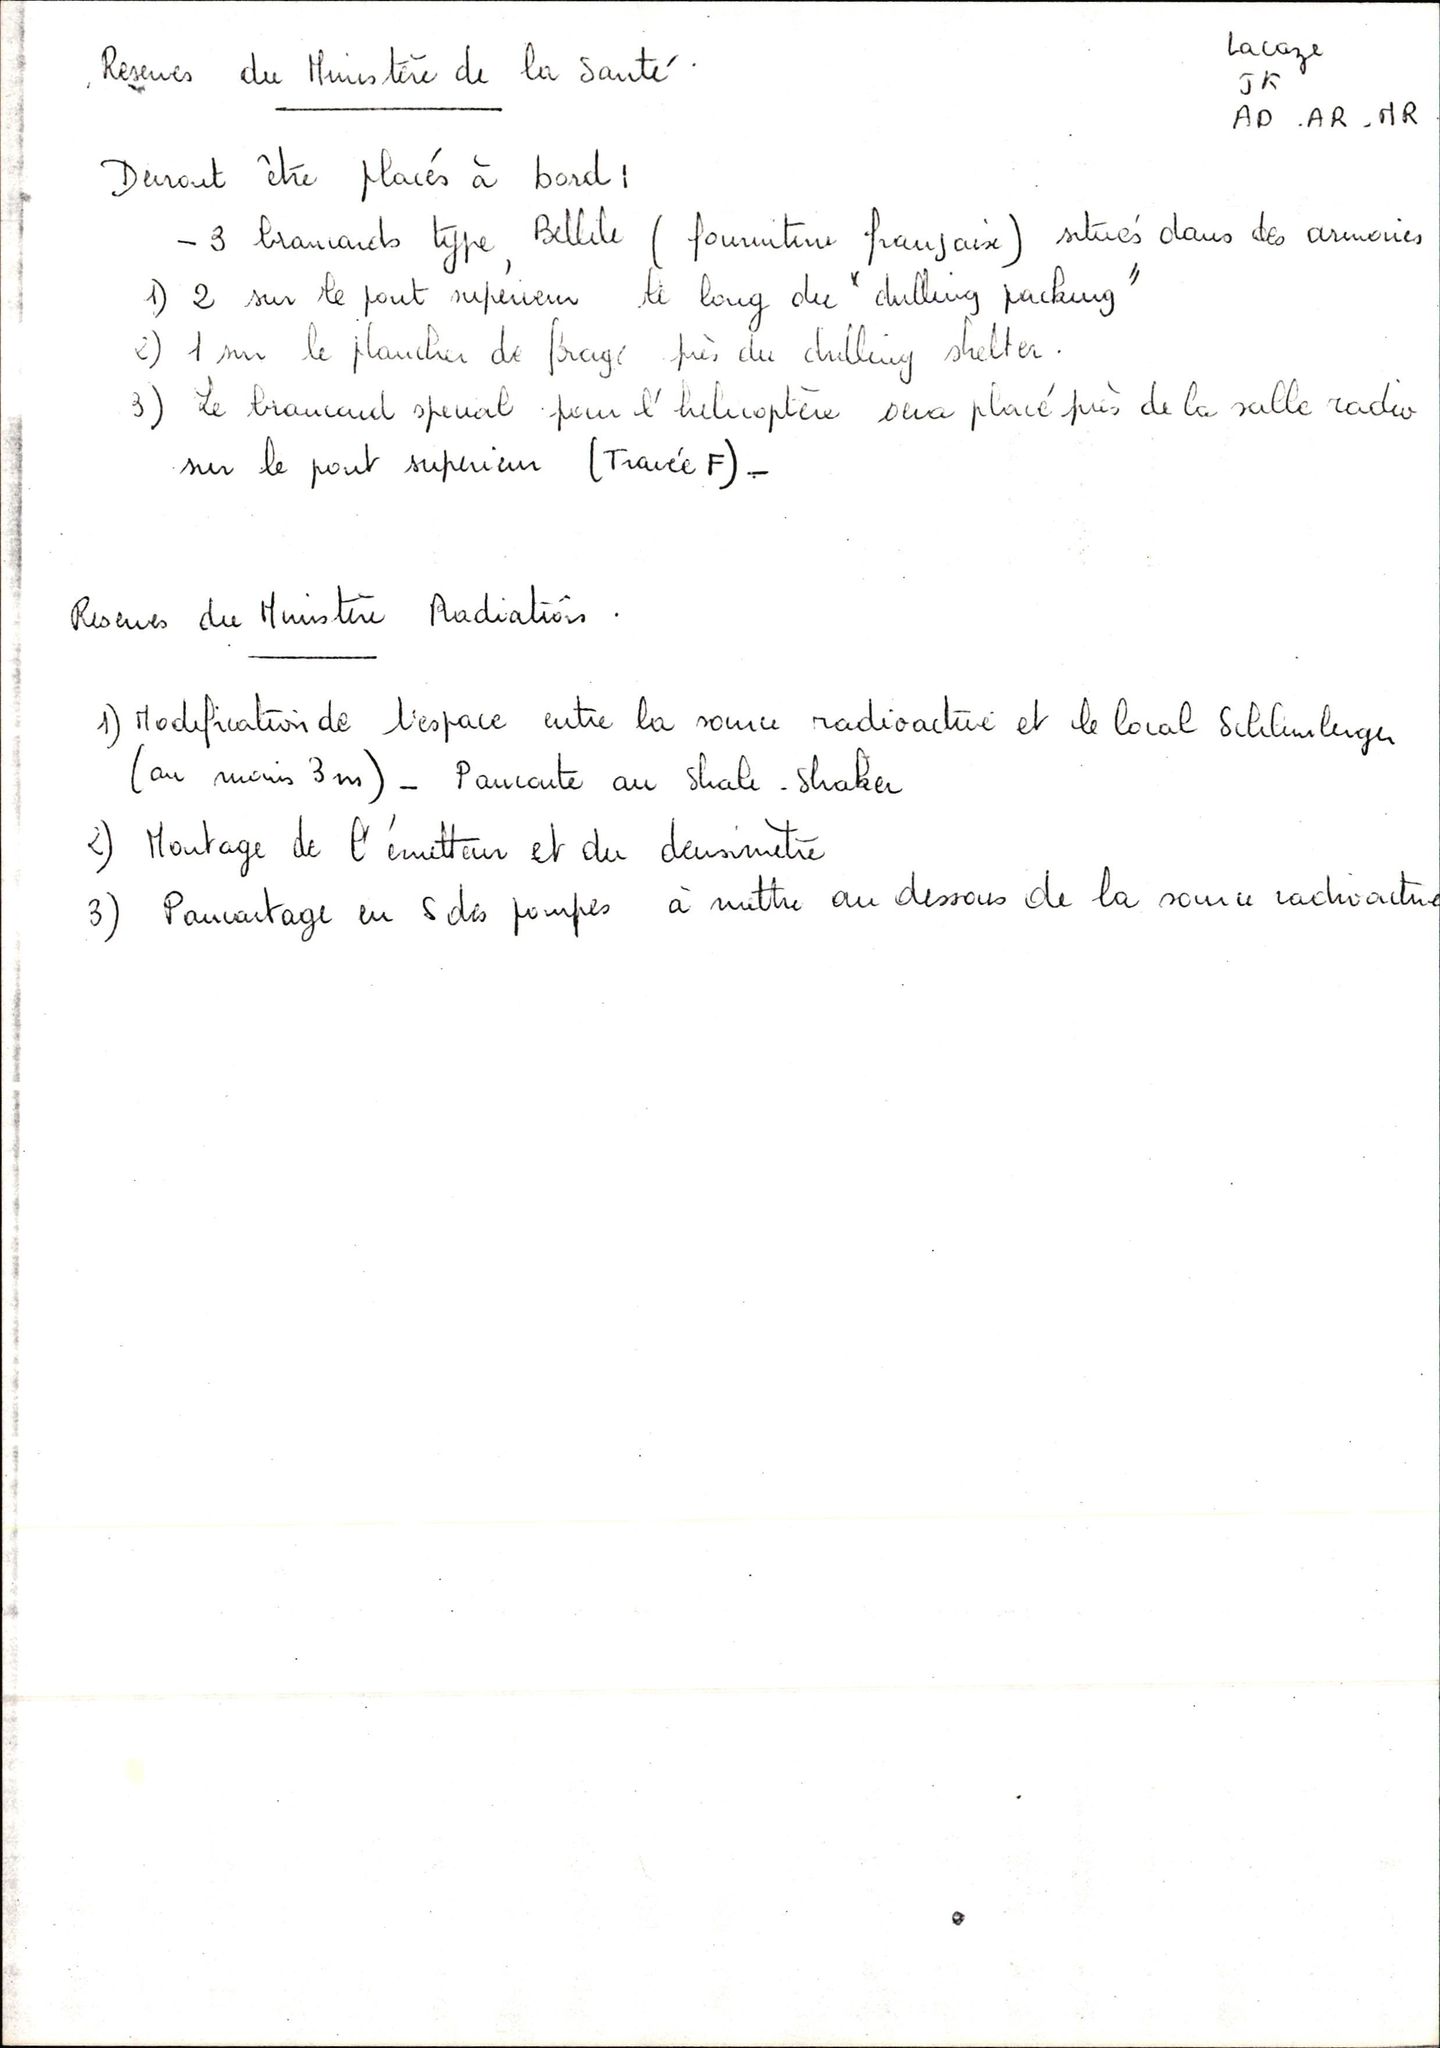 Lacaze
JK
AD . AR . MR
Réserves du Ministère de la Santé.
Devront être placés à bord :
- 3 brancards type Bellile (fourniture française) situés dans des armoires
1) 2 sur le pont supérieur le long du "drilling packing"
2) 1 sur le plancher de forage près du drilling shelter.
3) Le brancard special pour l'hélicoptère sera placé près de la salle radio
sur le pont superieur (Travée F) -
Reserves du Ministère Radiations.
1) Modification de l'espace entre la source radioactive et le local Schlumberger
(au moins 3 m) - Pancarte au Shale-Shaker
2) Montage de l'émetteur et du densimètre
3) Pancartage en S des pompes à mettre au dessous de la source radioactive